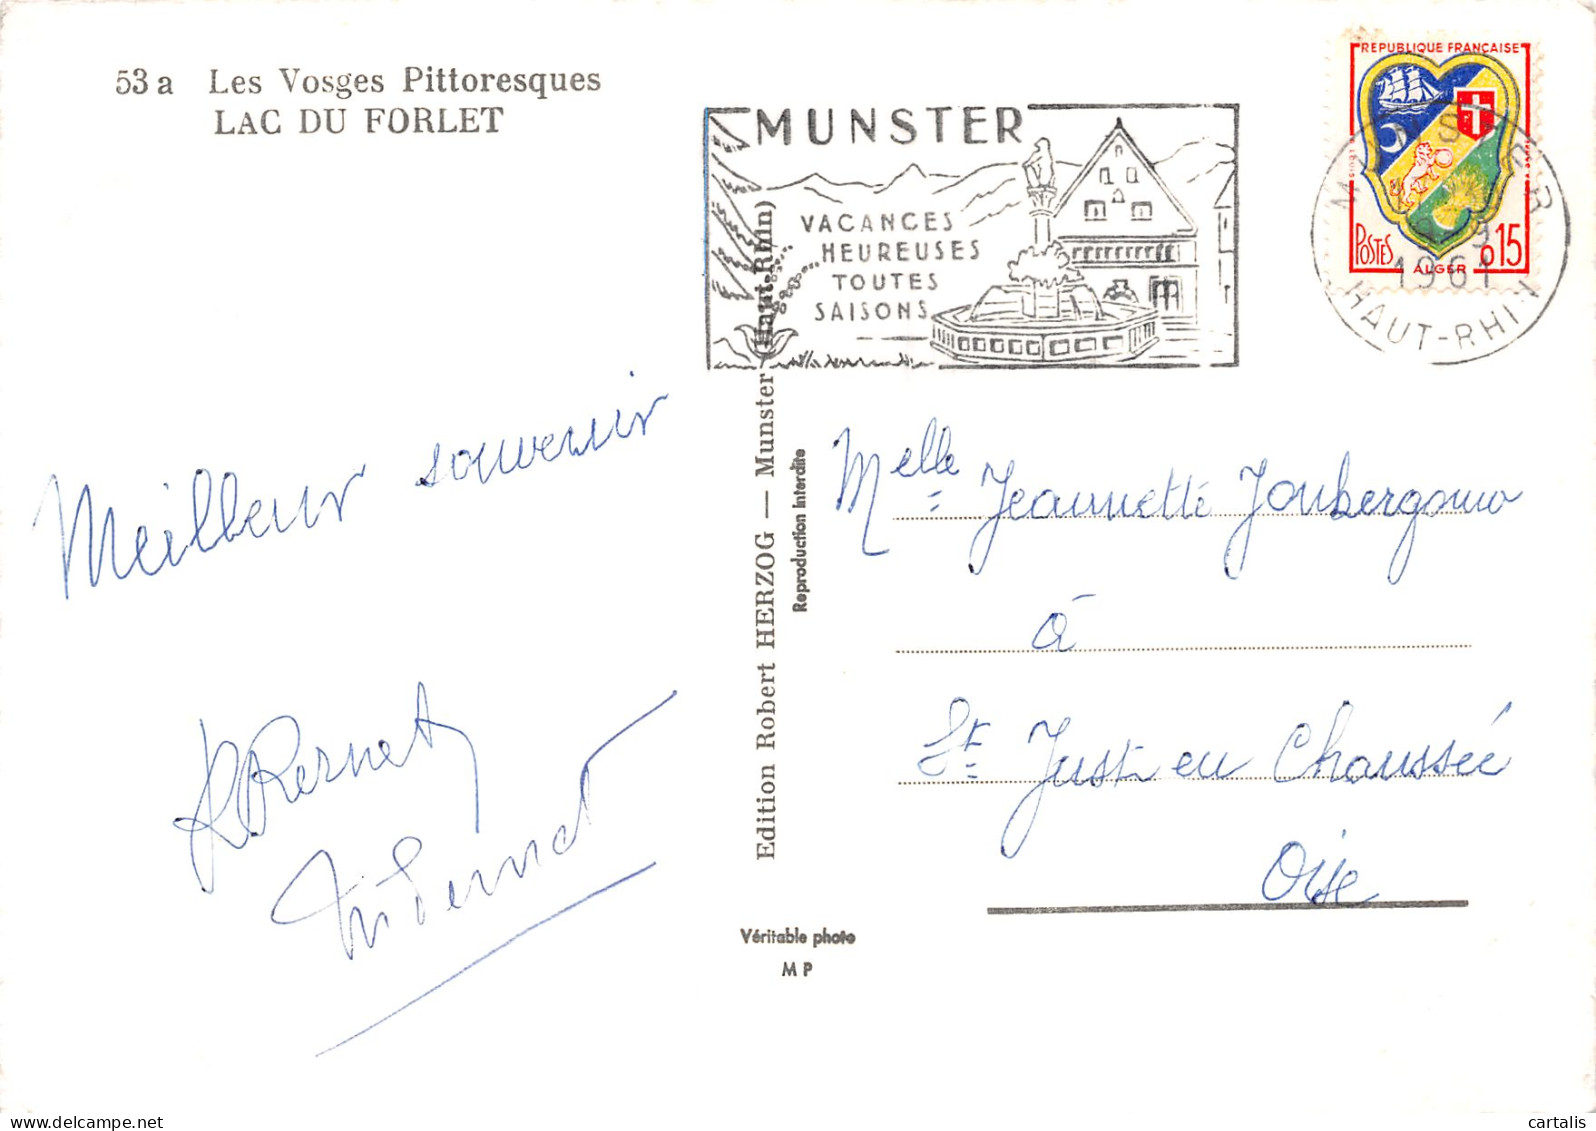 53 a Les Vosges Pittoresques
LAC DU FORLET
MUNSTER
VACANCES
HEUREUSES
TOUTES
SAISONS
REPUBLIQUE FRANÇAISE
POSTES
ALGER
0,15
MUNSTER
9
1961
HAUT-RHIN
Meilleur souvenir
Edition Robert HERZOG — Munster (Haut-Rhin)
Reproduction interdite
Melle Jeannette
à
St Just en Chaussée
Oise
Véritable photo
M P
cartalis